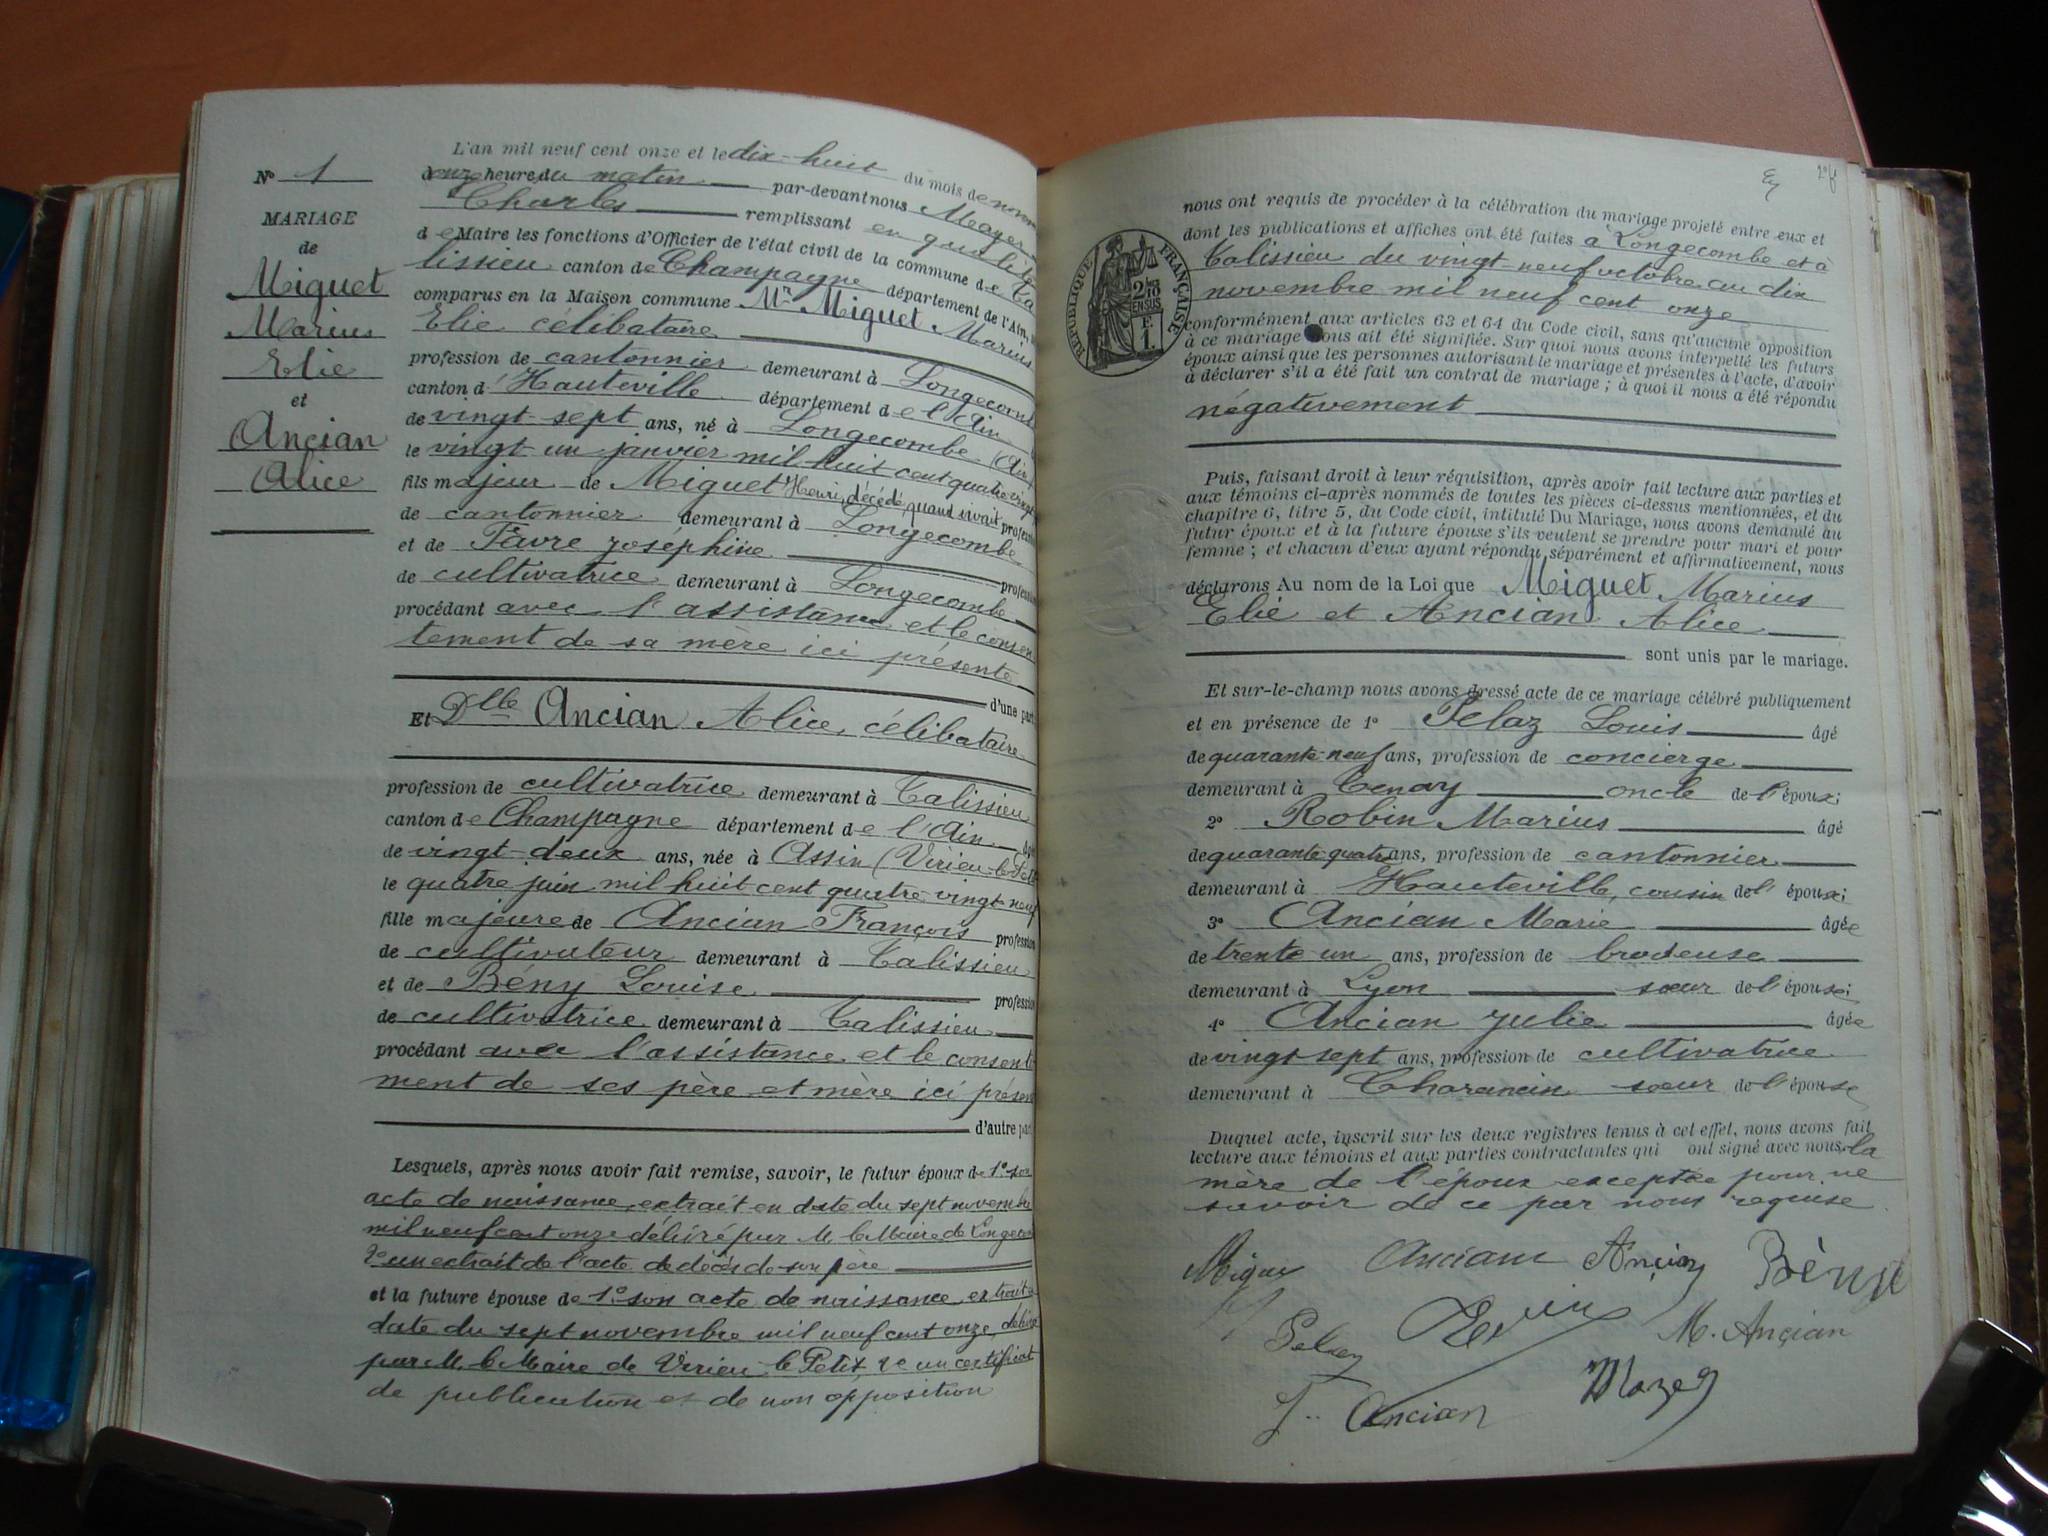 N° 1
MARIAGE
de
Miguet
Marius
Elie
et
Ancian
Alice
L'an mil neuf cent onze et le dix-huit du mois de novem
à onze heures du matin par-devant nous
Charles remplissant en qualité
de Maire les fonctions d'Officier de l'état civil de la commune de Ta
lissieu canton de Champagne département de l'Ain,
comparus en la Maison commune Mr Miguet Marius
Elie célibataire
profession de cantonnier demeurant à Longecombe
canton d'Hauteville département de l'Ain
de vingt-sept ans, né à Longecombe (Ain
le vingt un janvier mil huit cent quatre vingt
fils majeur de Miguet Henri, décédé, quand vivait profession
de cantonnier demeurant à Longecombe
et de Favre Joséphine profession
de cultivatrice demeurant à Longecombe
procédant avec l'assistance et le consen
tement de sa mère ici présente
d'une part
Et Dlle Ancian Alice, célibataire
profession de cultivatrice demeurant à Talissieu
canton de Champagne département de l'Ain âgée
de vingt-deux ans, née à Assin (Virieu-le-Petit
le quatre juin mil huit cent quatre vingt-neuf
fille majeure de Ancian François profession
de cultivateur demeurant à Talissieu
et de Bény Louise profession
de cultivatrice demeurant à Talissieu
procédant avec l'assistance et le consente
ment de ses père et mère ici présen
d'autre part
Lesquels, après nous avoir fait remise, savoir, le futur époux de 1° son
acte de naissance, extrait en date du sept novembre
mil neuf cent onze délivré par M. le Maire de Longecom
2° un extrait de l'acte de décès de son père
et la future épouse de 1° son acte de naissance, extrait
date du sept novembre mil neuf cent onze, délivré
par M. le Maire de Virieu-le-Petit, 2° un certificat
de publication et de non opposition
nous ont requis de procéder à la célébration du mariage projeté entre eux et
dont les publications et affiches ont été faites à Longecombe et à
Talissieu du vingt-neuf octobre au dix
novembre mil neuf cent onze
RÉPUBLIQUE FRANÇAISE
2/10 EN SUS
F.
1.
conformément aux articles 63 et 64 du Code civil, sans qu'aucune opposition
à ce mariage nous ait été signifiée. Sur quoi nous avons interpellé les futurs
époux ainsi que les personnes autorisant le mariage et présentes à l'acte, d'avoir
à déclarer s'il a été fait un contrat de mariage ; à quoi il nous a été répondu
négativement
Puis, faisant droit à leur réquisition, après avoir fait lecture aux parties et
aux témoins ci-après nommés de toutes les pièces ci-dessus mentionnées, et du
chapitre 6, titre 5, du Code civil, intitulé Du Mariage, nous avons demandé au
futur époux et à la future épouse s'ils veulent se prendre pour mari et pour
femme ; et chacun d'eux ayant répondu séparément et affirmativement, nous
déclarons Au nom de la Loi que Miguet Marius
Elie et Ancian Alice
sont unis par le mariage.
Et sur-le-champ nous avons dressé acte de ce mariage célébré publiquement
et en présence de 1° Pelaz Louis âgé
de quarante-neuf ans, profession de concierge
demeurant à Tenay oncle de l'époux;
2° Robin Marius âgé
de quarante quatre ans, profession de cantonnier
demeurant à Hauteville, cousin de l'époux;
3° Ancian Marie âgée
de trente un ans, profession de brodeuse
demeurant à Lyon sœur de l'épouse;
4° Ancian Julie âgée
de vingt-sept ans, profession de cultivatrice
demeurant à Charancin sœur de l'épouse
Duquel acte, inscrit sur les deux registres tenus à cet effet, nous avons fait
lecture aux témoins et aux parties contractantes qui ont signé avec nous, la
mère de l'époux exceptée pour ne
savoir de ce par nous requise.
Miguet Anciant Ancian Bény
Pelaz Robin M. Ancian
J. Ancian